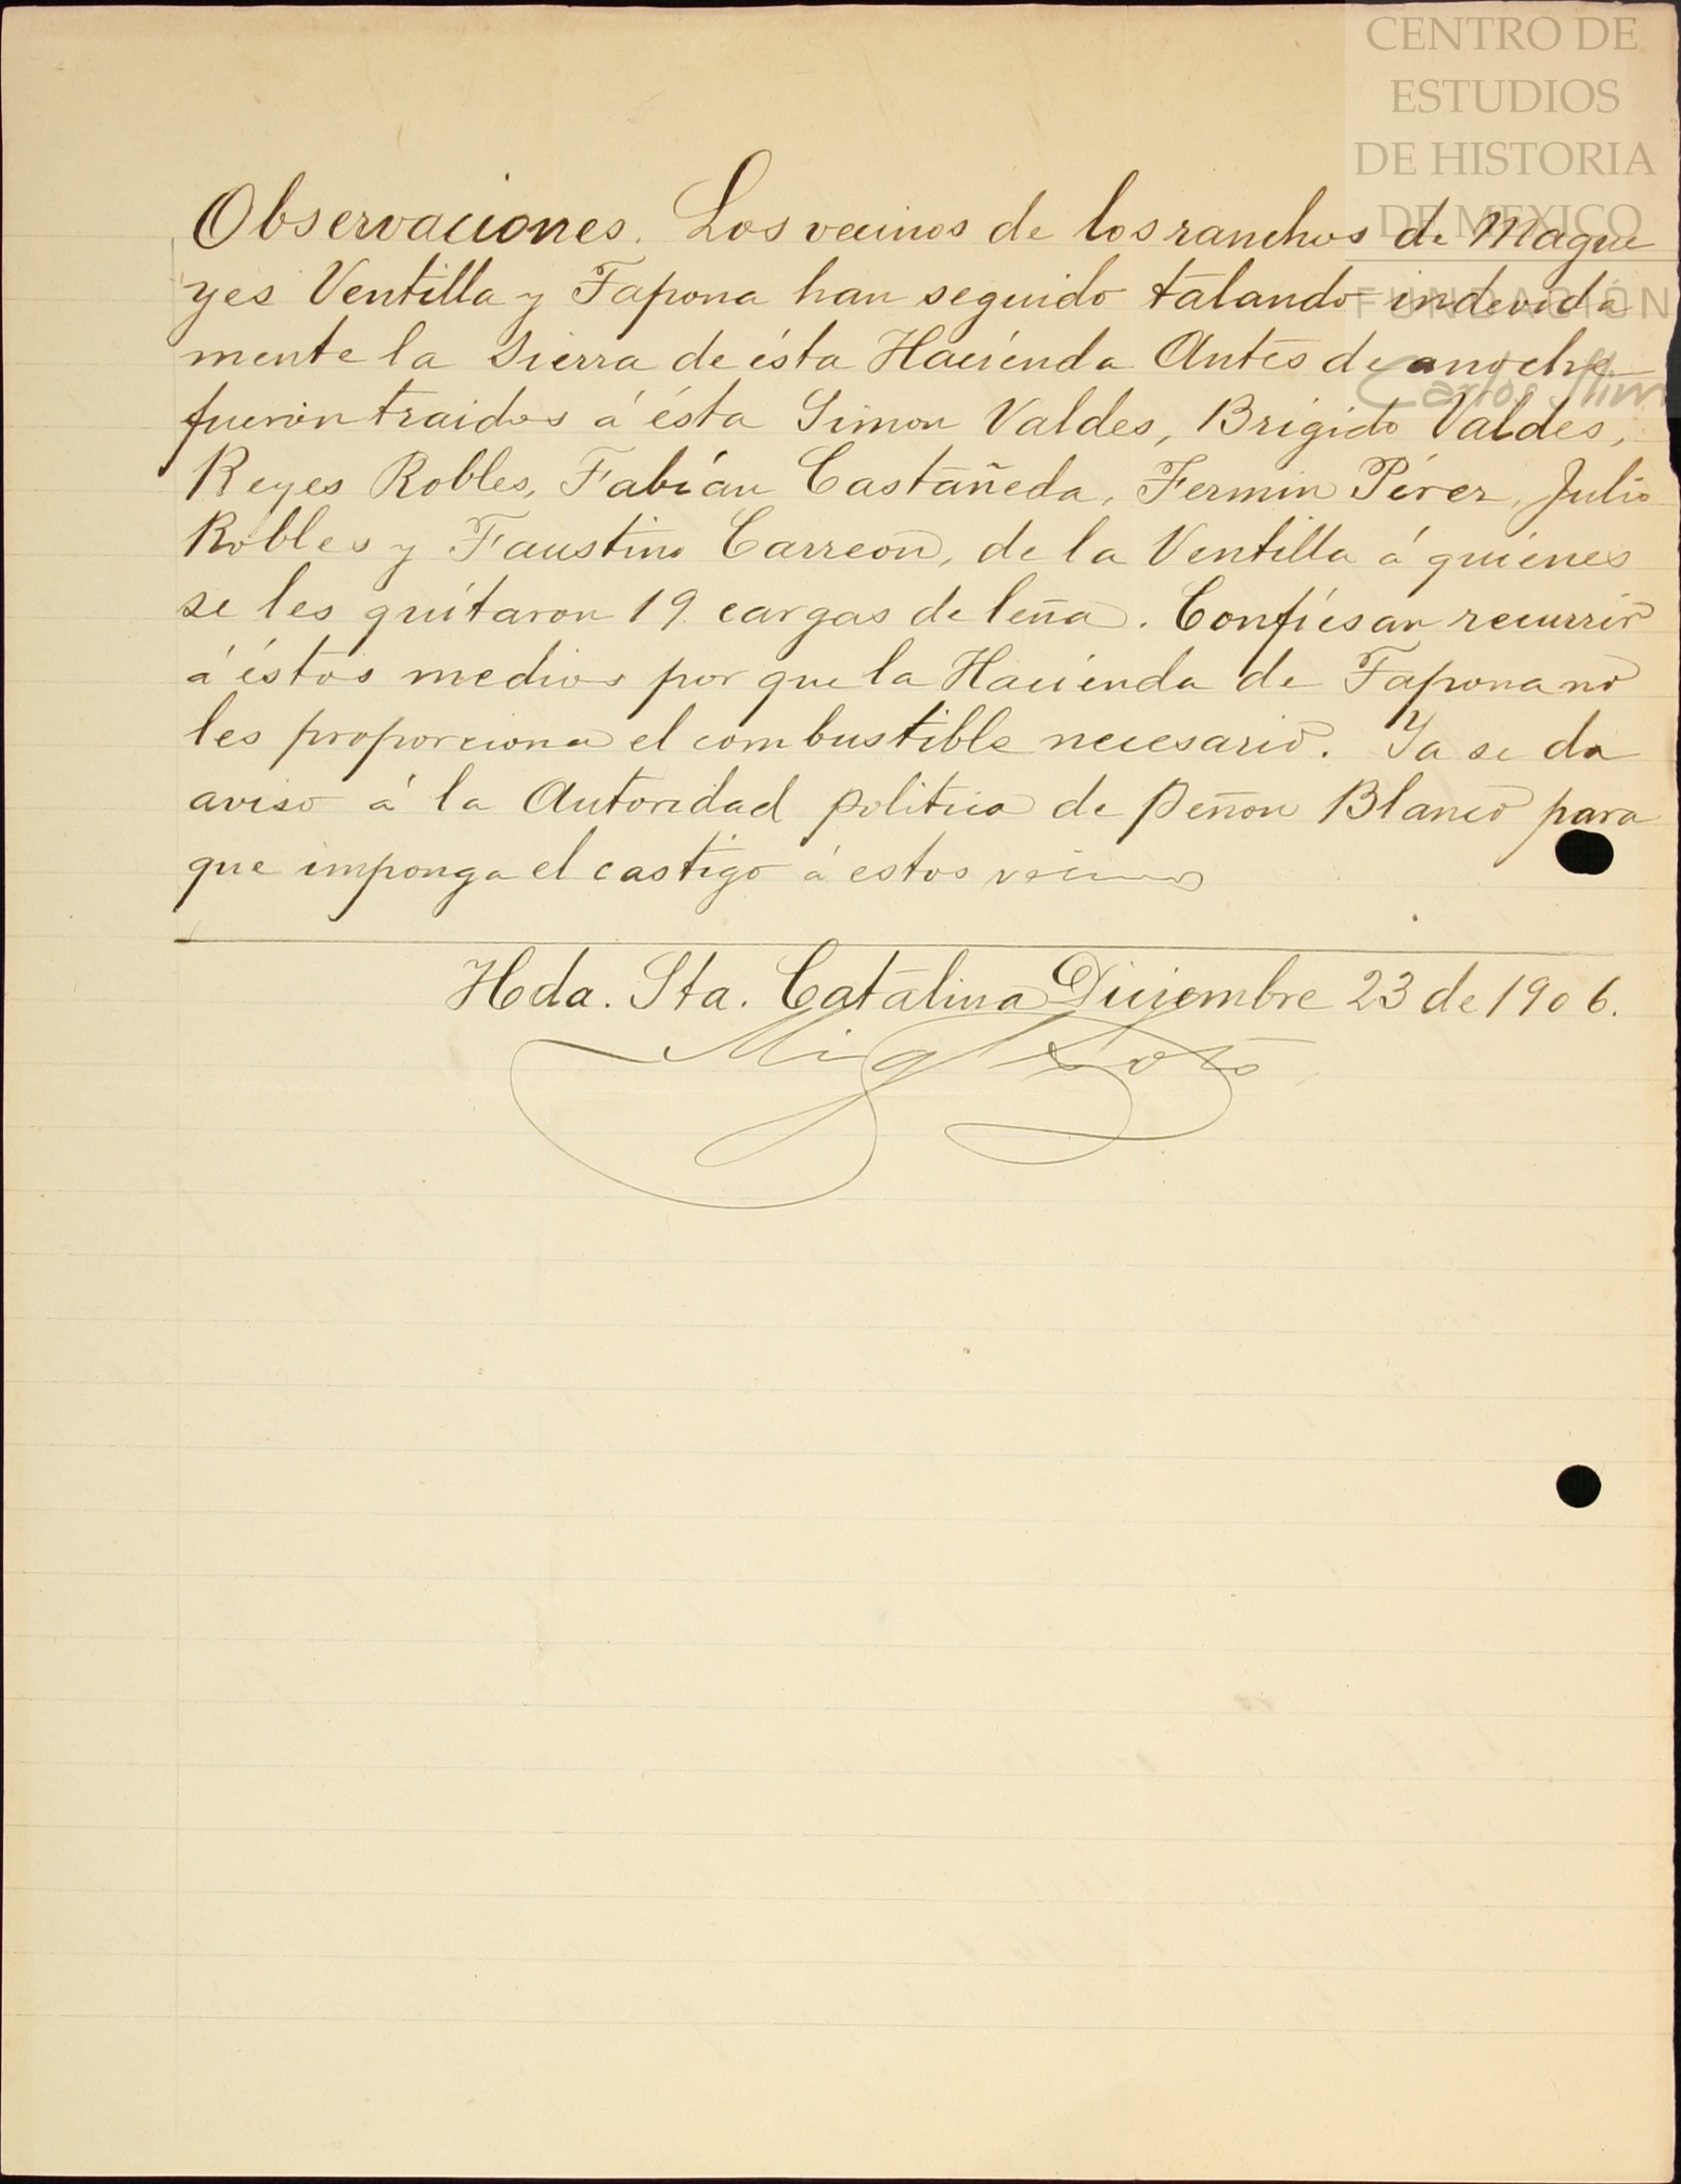 CENTRO DE
ESTUDIOS
DE HISTORIA
DE MEXICO
FUNDACIÓN
Carlos Slim
Observaciones. Los vecinos de los ranchos de Mague
yes Ventilla y Tapona han seguido talando indevida
mente la Sierra de ésta Hacienda Antes de anoche
fueron traidos á ésta Simon Valdes, Brigido Valdes,
Reyes Robles, Fabían Castañeda, Fermin Pérez, Julio
Robles y Faustino Carreon, de la Ventilla á quienes
se les quitaron 19 cargas de leña. Confiesan recurrir
á éstos medios por que la Hacienda de Tapona no
les proporciona el combustible necesario. Ya se da
aviso á la Autoridad politica de Peñon Blanco para
que imponga el castigo á estos vecinos
Hda. Sta. Catalina Diciembre 23 de 1906.
Migl Soto